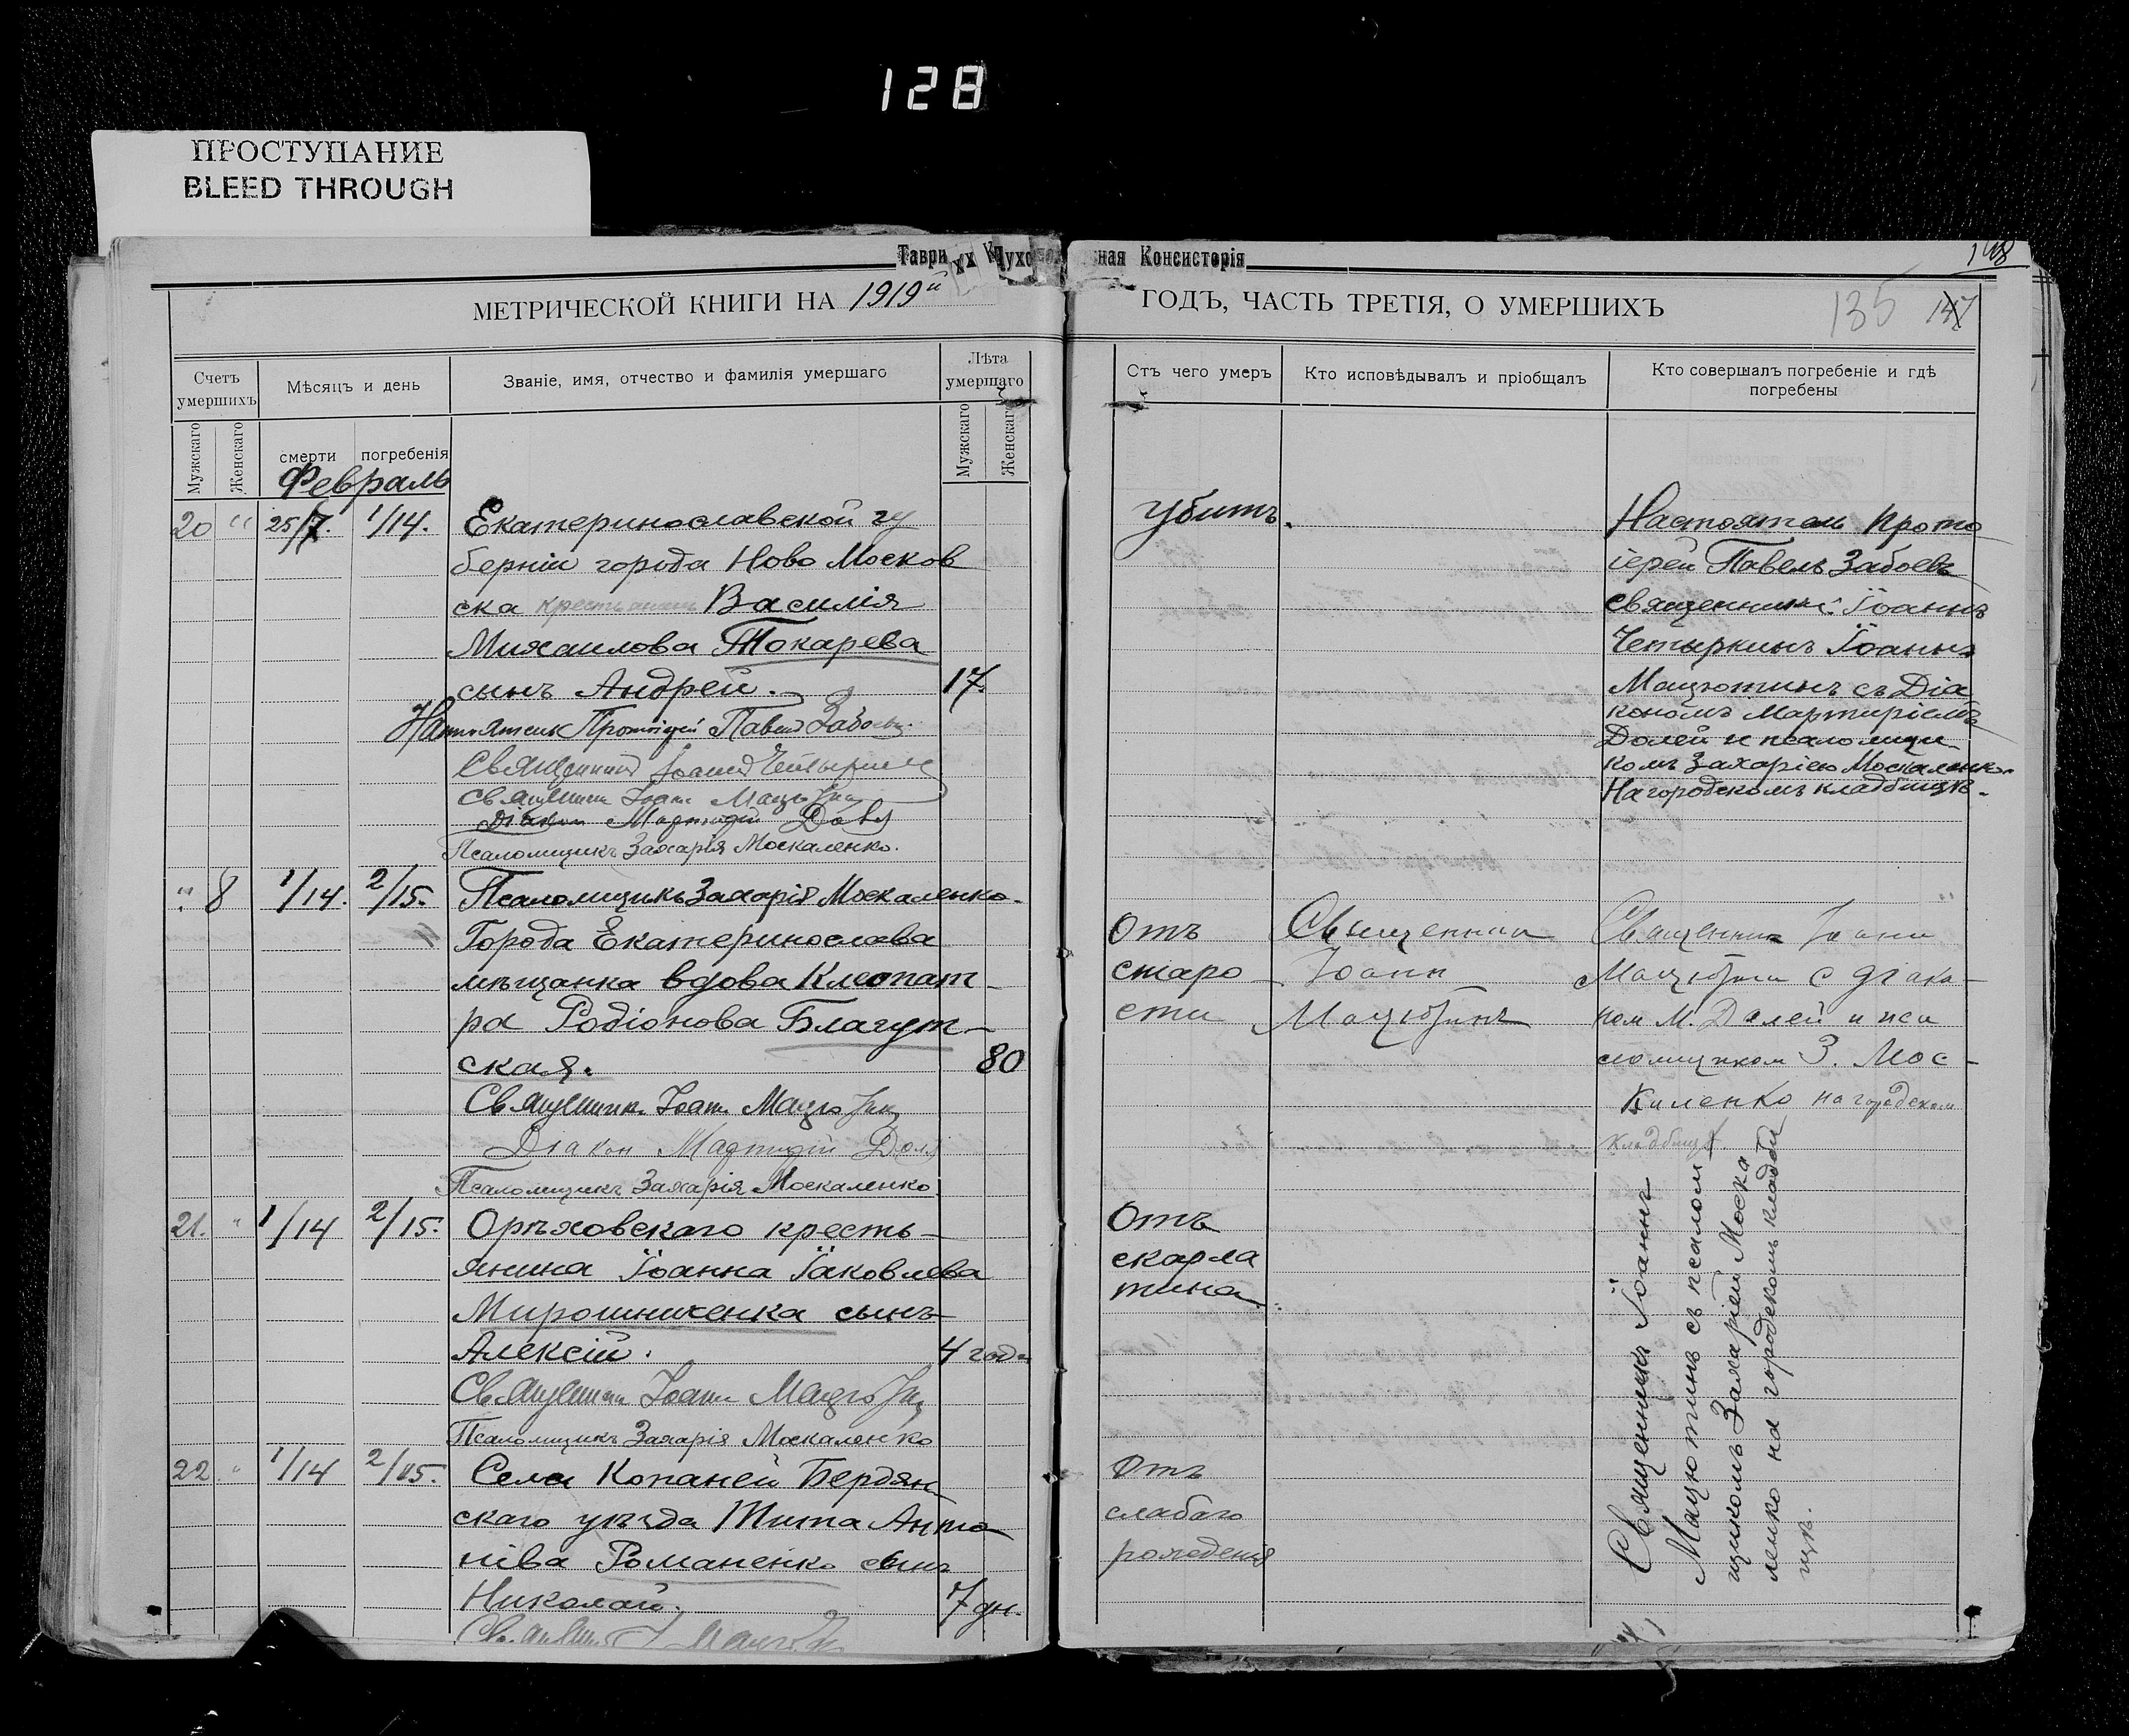 128
ПРОСТУПАНИЕ
BLEED THROUGH
Таври
Духо
ная Консисторія
148
МЕТРИЧЕСКОЙ КНИГИ НА 1919й
ГОДЪ, ЧАСТЬ ТРЕТІЯ, О УМЕРШИХЪ
135 147
Счетъ умершихъ
Мѣсяцъ и день
Званіе, имя, отчество и фамилія умершаго
Лѣта умершаго
Отъ чего умеръ
Кто исповѣдывалъ и пріобщалъ
Кто совершалъ погребеніе и гдѣ
погребены
Мужскаго
Женскаго
смерти
погребенія
Мужскаго
Женскаго
Февраль
20 " 25/7. 1/14.
Екатеринославской гу
берніи города Ново Москов
ска крестьянина Василія
Михаилова Токарева
сынъ Андрей. 17.
Настоятель Протоіерей Павел Забоевъ
Священник Іоанн Четыркин
Священник Іоанн Мацютин
Діакон Мартирій Доля
Псаломщикъ Захарія Москаленко.
убитъ.
Настоятель Прото
іерей Павелъ Забоевъ
священники: Іоаннъ
Четыркинъ Іоаннъ
Мацютинъ съ Діа
кономъ Мартиріемъ
Долей и псаломщи
комъ Захаріею Москаленко.
На городскомъ кладбищѣ.
" 8 1/14. 2/15.
Псаломщикъ Захарія Москаленко.
Города Екатеринослава
мѣщанка вдова Клеопат
ра Родіонова Благут-
ская. 80
Священник Іоанн Мацютин
Діакон Мартирій Доля
Псаломщикъ Захарія Москаленко
Отъ
старо
сти
Священник
Іоанн
Мацютинъ
Священник Іоанн
Мацютин с діако-
ном М. Долей и пса
ломщиком З. Мос-
каленко на городском
кладбищѣ.
21. " 1/14 2/15.
Орѣховскаго кресть-
янина Іоанна Іаковлева
Мирошниченка сынъ
Алексій. 4 года
Священник Іоанн Мацютин
Псаломщикъ Захарія Москаленко
Отъ
скарла
тина.
Священникъ Іоаннъ
Мацютинъ съ псалом
щикомъ Захаріей Моска
ленко на городскомъ кладби
щѣ.
22 " 1/14 2/15.
Села Копаней Бердян
скаго уѣзда Тита Анто
ніва Романенко сынъ
Николай. 7 дн.
Отъ
слабаго
рожденія